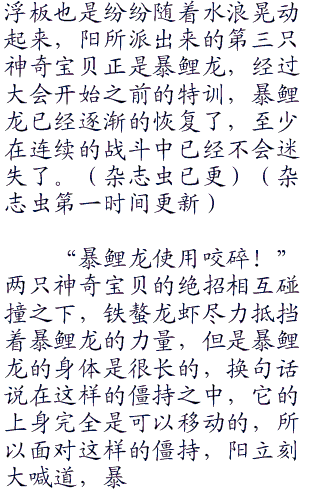 浮板也是纷纷随着水浪晃动
起来，阳所派出来的第三只
神奇宝贝正是暴鲤龙，经过
大会开始之前的特训，暴鲤
龙已经逐渐的恢复了，至少
在连续的战斗中已经不会迷
失了。（杂志虫已更）（杂
志虫第一时间更新）
“暴鲤龙使用咬碎！”
两只神奇宝贝的绝招相互碰
撞之下，铁螯龙虾尽力抵挡
着暴鲤龙的力量，但是暴鲤
龙的身体是很长的，换句话
说在这样的僵持之中，它的
上身完全是可以移动的，所
以面对这样的僵持，阳立刻
大喊道，暴